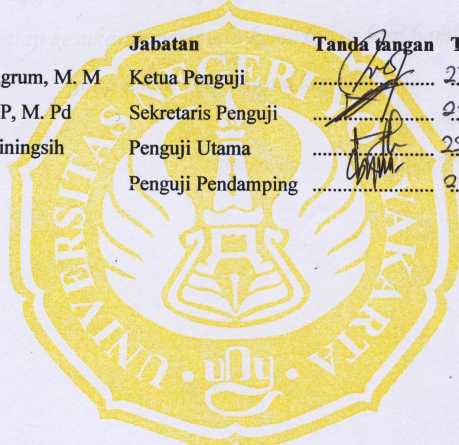 Jabatan Tanda tangan T
grum, M. M Ketua Penguji
P, M. Pd Sekretaris Penguji
iningsih Penguji Utama
Penguji Pendamping
UNIVERSITAS NEGERI YOGYAKARTA
uny